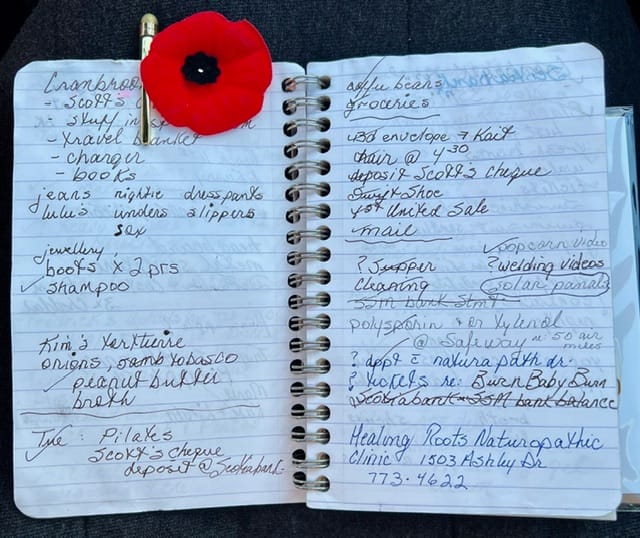 Cranbroo
- Scott's
- stuff in
- travel blanket
- charger
- books
jeans nightie dress pants
lulu's unders slippers
sox
jewellery
boots x 2 prs
shampoo
Kim's
onions, sambtobasco
peanut butter
broth
Tue: Pilates
Scott's cheque
deposit @ Scotiabank
coffee beans
groceries
envelope → Kait
hair @ 4:30
deposit Scott's cheque
Swift Shoe
1st United Sale
mail
popcorn video
? Supper ? welding videos
cleaning solar panals
SSM bank Stmt
polysporin + or Tylenol
@ Safeway 50 air
miles
? appt c̄ naturapath dr.
? tickets re: Burn Baby Burn
Scotiabank SSM bank balance
Healing Roots Naturopathic
Clinic 1503 Ashley Dr
773.4622